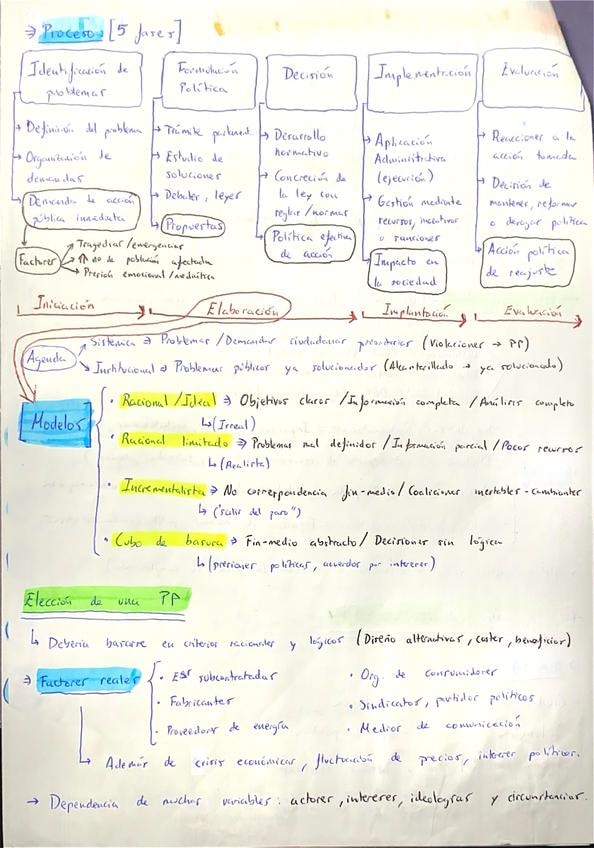 ⇒ Proceso: [5 fases]
Identificación de problemas
→ Definición del problema
→ Organización de demandas
→ Demanda de acción pública inmediata
Factores
→ Tragedias/emergencias
→ ↑↑ no de población afectada
→ Presión emocional/mediática
Formulación Política
→ Trámite parlament.
→ Estudio de soluciones
→ Debates, leyes
Propuestas
Decisión
→ Desarrollo normativo
→ Concreción de la ley con reglas/normas
Política efectiva de acción
Implementación
→ Aplicación Administrativa (ejecución)
→ Gestión mediante recursos, incentivos o sanciones
Impacto en la sociedad
Evaluación
→ Reacciones a la acción tomada
→ Decisión de mantener, reformar o derogar política
Acción política de reajuste
Iniciación Elaboración Implantación Evaluación
Agenda
→ Sistémica ⇒ Problemas/Demandas ciudadanas prioritarias (Violaciones → PP)
→ Institucional ⇒ Problemas públicos ya solucionados (Alcantarillado → ya solucionado)
Modelos
• Racional/Ideal ⇒ Objetivos claros/Información completa/Análisis completo
↳ (Irreal)
• Racional limitado ⇒ Problemas mal definidos/Información parcial/Pocos recursos
↳ (Realista)
• Incrementalista ⇒ No correspondencia fin-medio/Coaliciones inestables-cambiantes
↳ ("salir del paso")
• Cubo de basura ⇒ Fin-medio abstracto/Decisiones sin lógica
↳ (presiones políticas, acuerdos por intereses)
Elección de una PP
↳ Debería basarse en criterios racionales y lógicos (Diseño alternativas, costes, beneficios)
⇒ Factores reales
• Eªs subcontratadas
• Fabricantes
• Proveedores de energía
• Org. de consumidores
• Sindicatos, partidos políticos
• Medios de comunicación
↳ Además de crisis económicas, fluctuación de precios, interés políticos.
→ Dependencia de muchas variables: actores, intereses, ideologías y circunstancias.